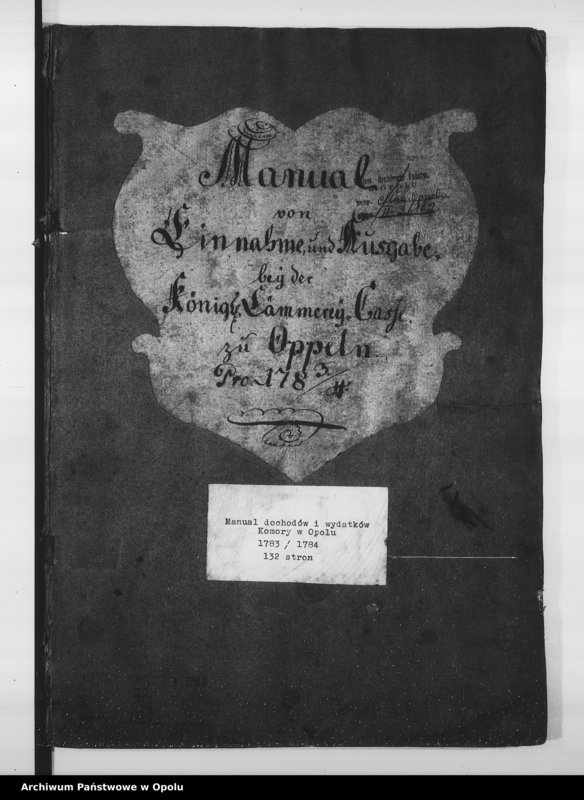 Manual
von
Einnahme, und Ausgabe,
bey der
Königl. Cämmerey-Casse
zu Oppeln
Pro. 178 3/4.
Manual dochodów i wydatków
Komory w Opolu
1783 / 1784
132 stron
Archiwum Państwowe w Opolu